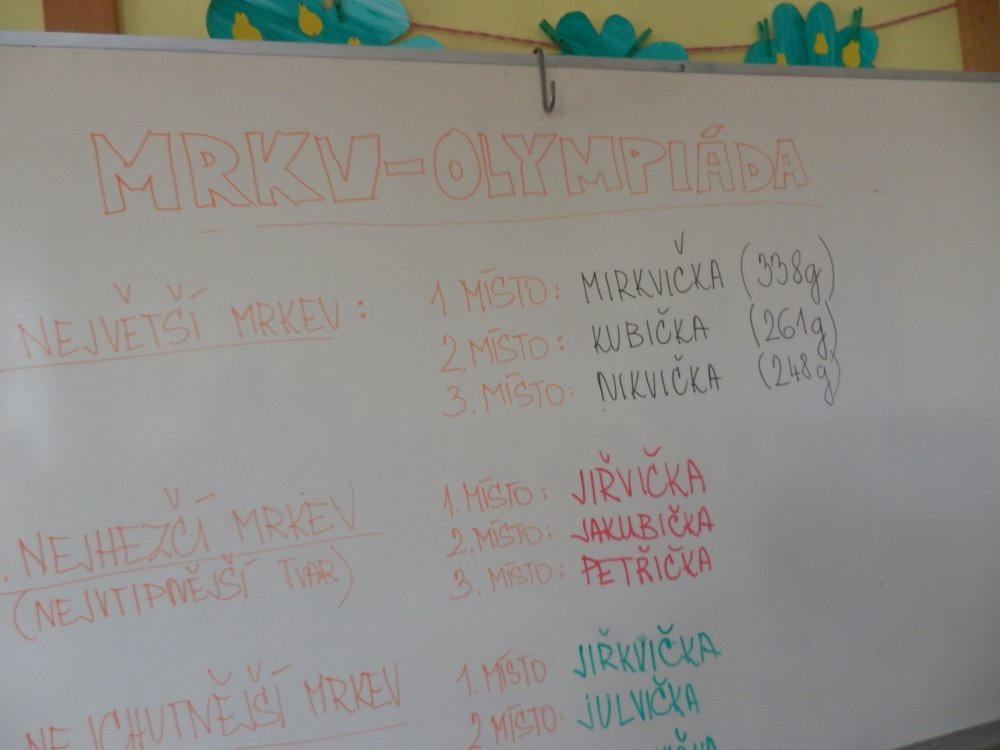 MRKV-OLYMPIÁDA
NEJVĚTŠÍ MRKEV: 1. MÍSTO: MIRKVIČKA (338g)
2. MÍSTO: KUBIČKA (261g)
3. MÍSTO: NIKVIČKA (248g)
. NEJHEZČÍ MRKEV 1. MÍSTO: JIŘVIČKA
(NEJVTIPNĚJŠÍ TVAR) 2. MÍSTO: JAKUBIČKA
3. MÍSTO: PETŘIČKA
NEJCHUTNĚJŠÍ MRKEV 1. MÍSTO: JIŘKVIČKA
2 MÍSTO: JULVIČKA